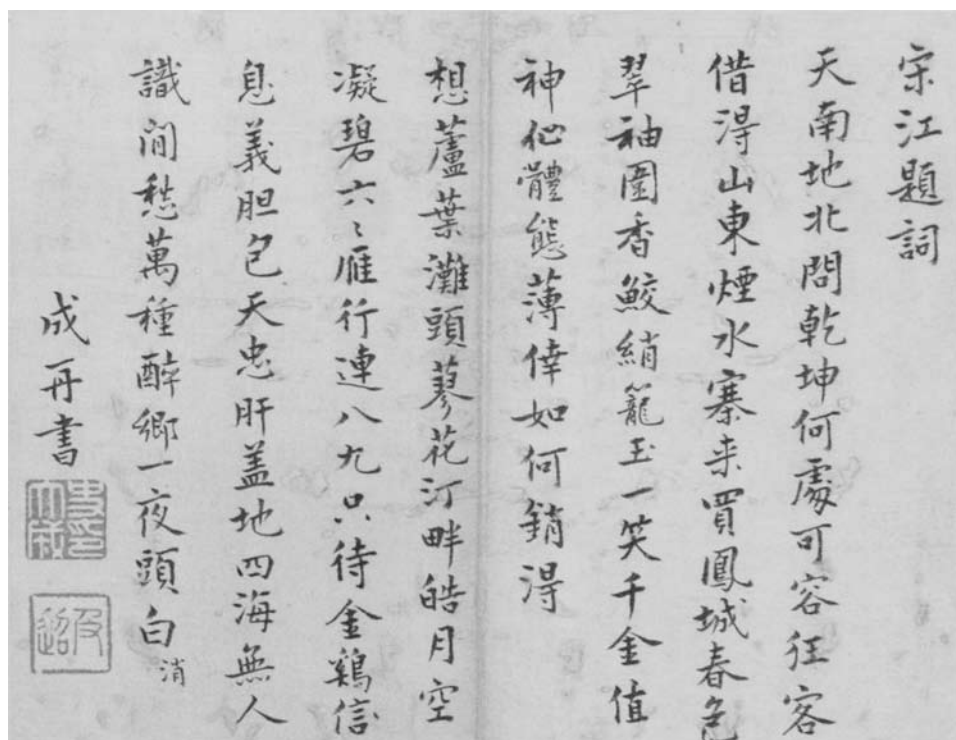 宋江題詞
天南地北問乾坤何處可容狂客
借得山東煙水寨来買鳳城春色
翠袖圍香鮫綃籠玉一笑千金值
神仙體態薄倖如何銷得
想蘆葉灘頭蓼花汀畔皓月空
凝碧六〻雁行連八九只待金鷄信
息義胆包天忠肝盖地四海無人
識閒愁萬種醉鄉一夜頭白 消
成再書